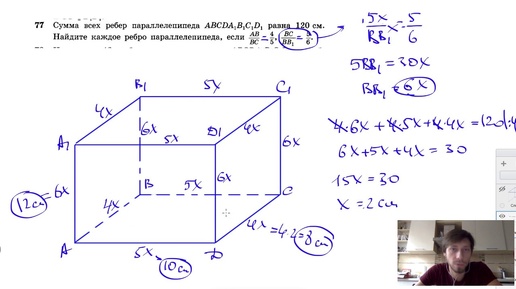 77 Сумма всех ребер параллелепипеда ABCDA₁B₁C₁D₁ равна 120 см.
Найдите каждое ребро параллелепипеда, если AB/BC = 4/5, BC/BB₁ = 5/6.
5x/BB₁ = 5/6
5BB₁ = 30x
BB₁ = 6x
4·6x + 4·5x + 4·4x = 120 |:4
6x + 5x + 4x = 30
15x = 30
x = 2 см
B₁ 5x C₁
4x 6x 4x
A₁ 5x D₁ 6x
12 см = 6x 6x
B 5x C
4x 4x = 4·2 = 8 см
A 5x D
10 см